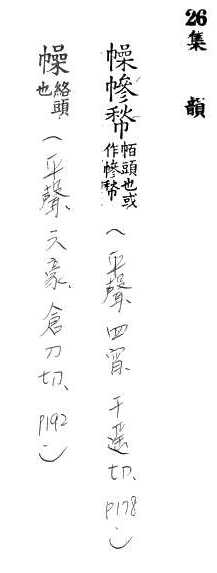 26 集 韻
幧幓 帞頭也或作幓 (平聲、四宵、千遙切、P178)
幧 絡頭也 (平聲、六豪、倉刀切、P192)